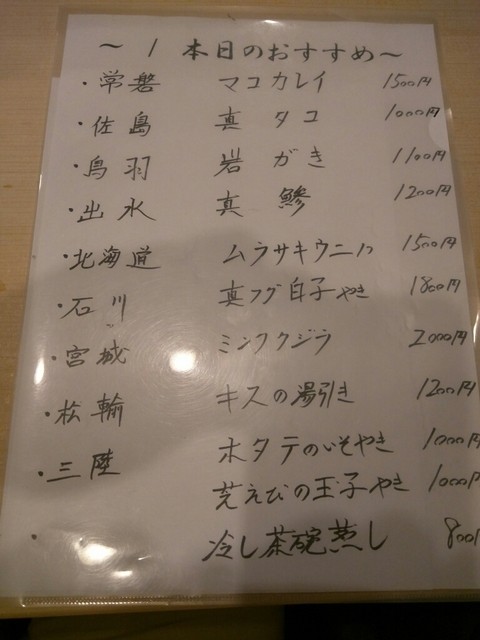 ～ 本日のおすすめ～
・常磐 マコカレイ 1500円
・佐島 真タコ 1000円
・鳥羽 岩がき 1100円
・出水 真鯵 1200円
・北海道 ムラサキウニ 1500円
・石川 真フグ白子やき 1800円
・宮城 ミンククジラ 2000円
・松輪 キスの湯引き 1200円
・三陸 ホタテのいそやき 1000円
芝えびの玉子やき 1000円
・ 冷し茶碗蒸し 800円